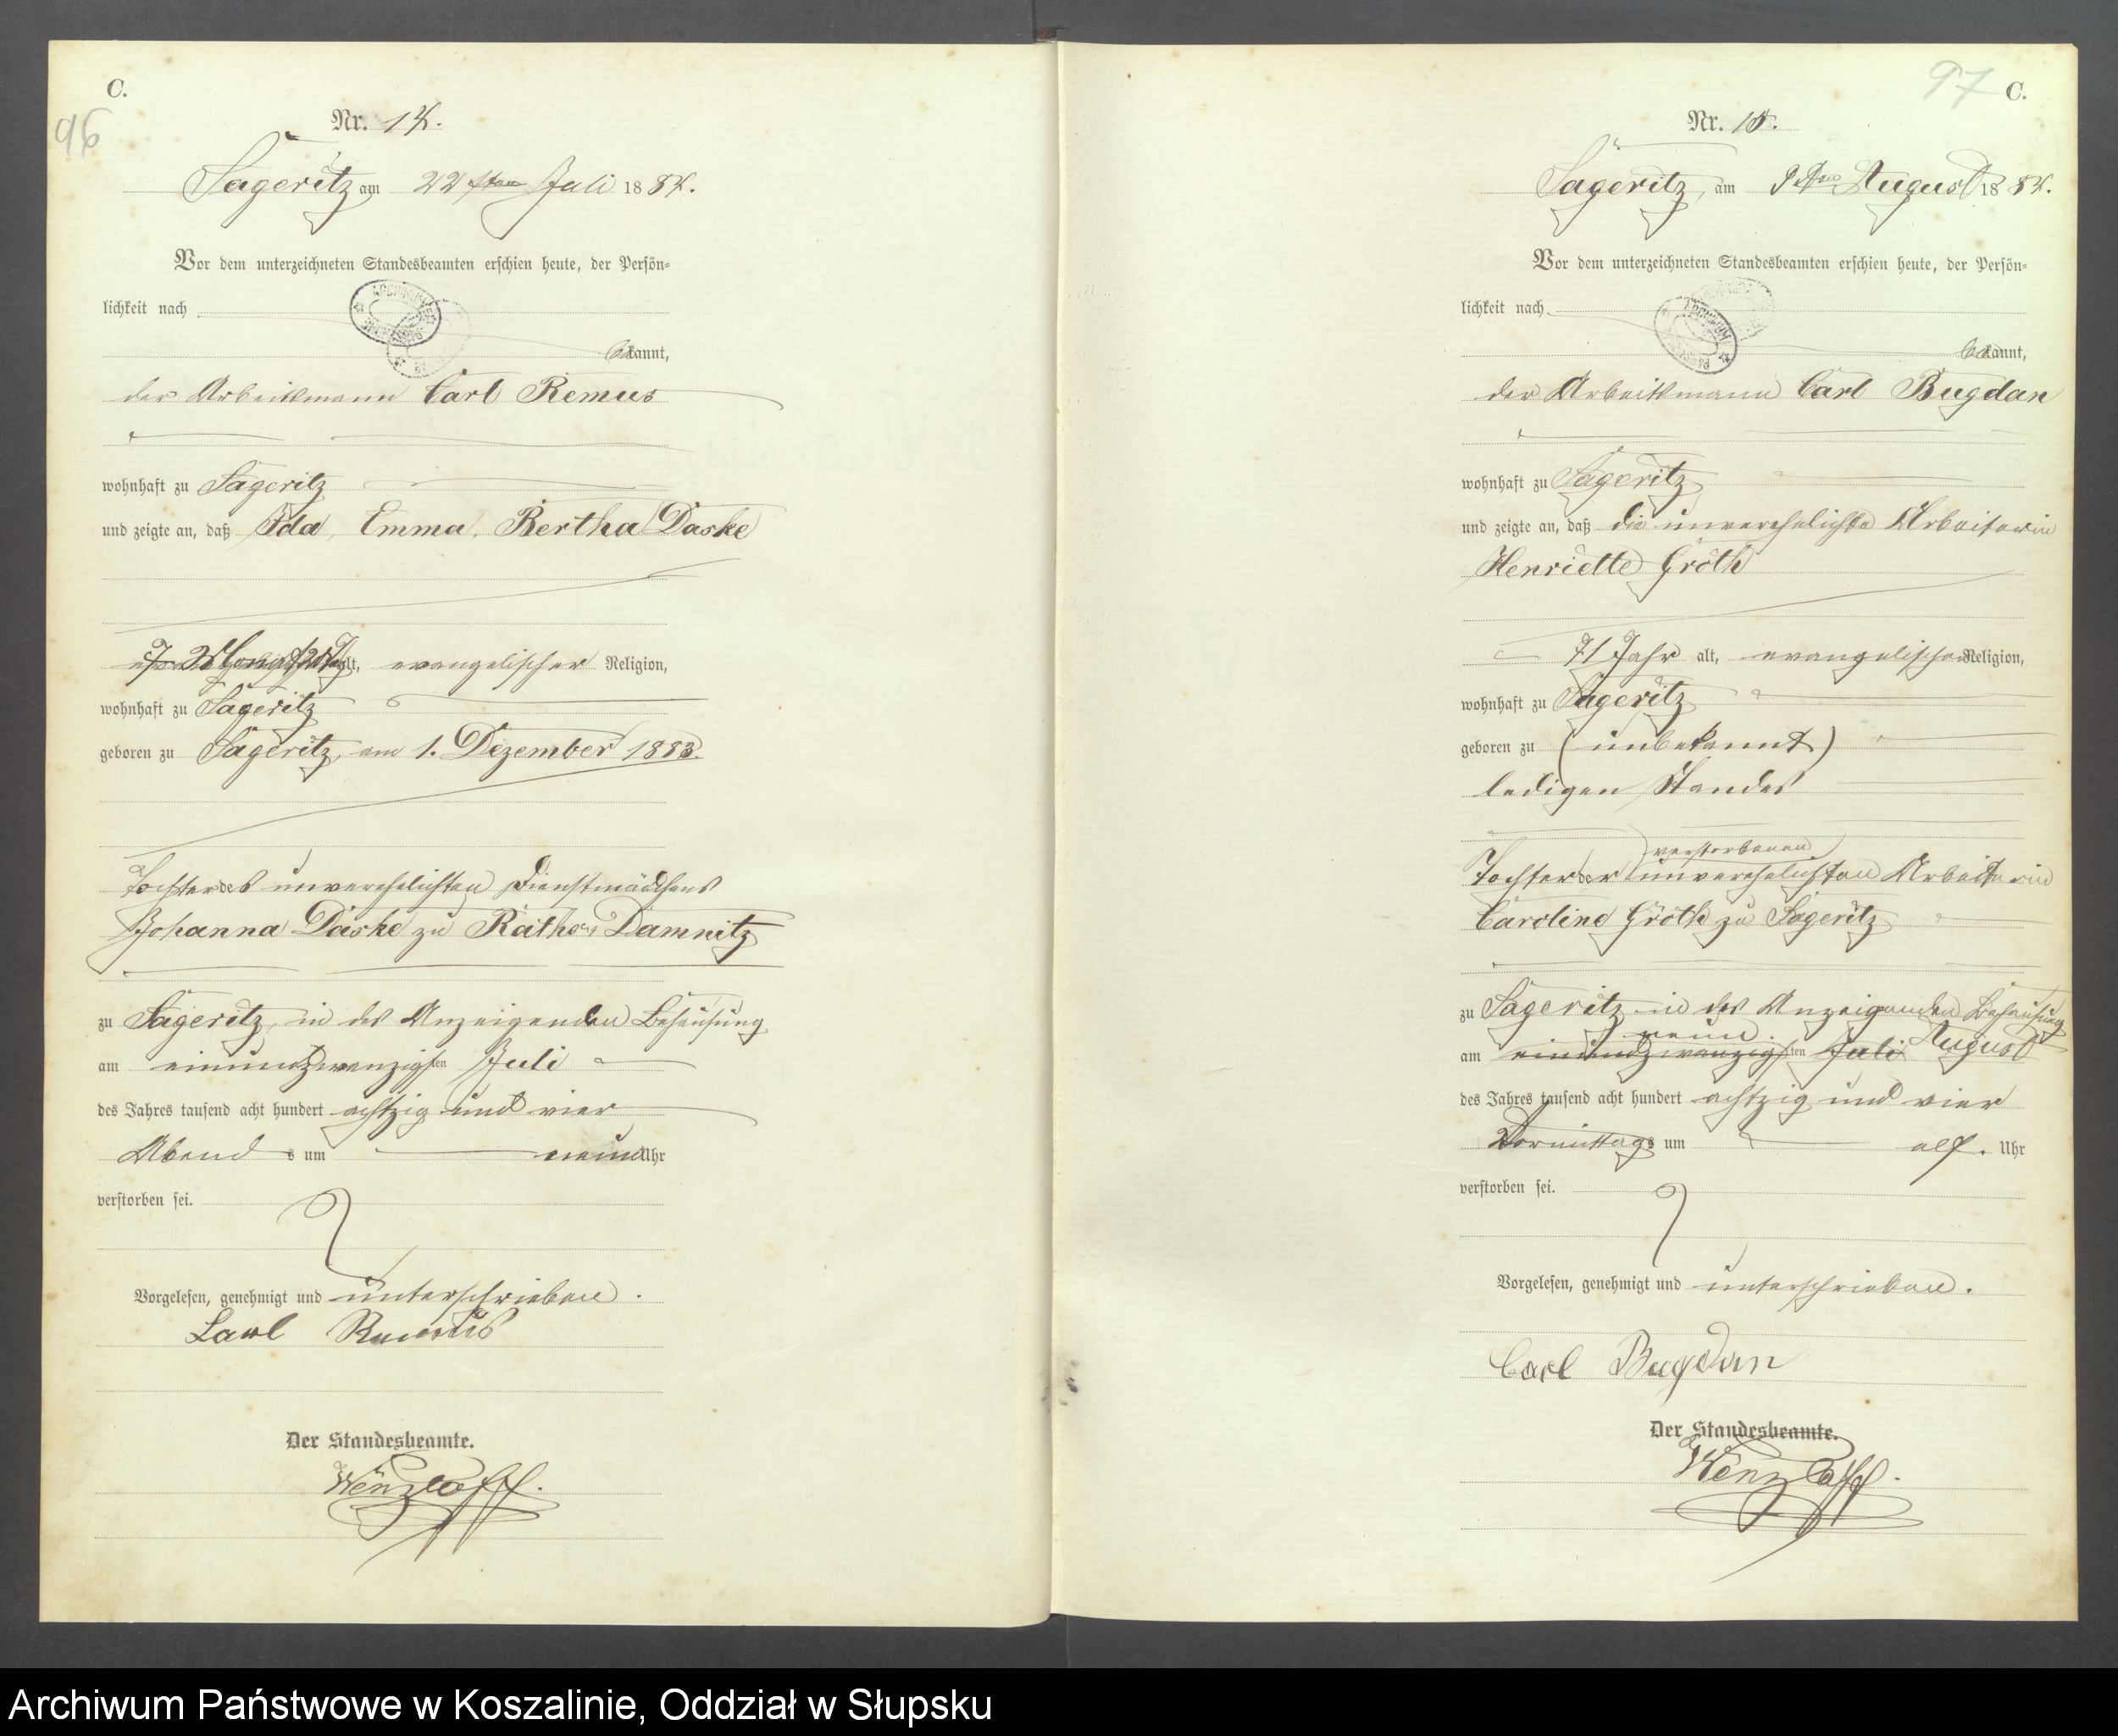 C.
96
Nr. 14.
Sageritz am 22sten Juli 1884.
Vor dem unterzeichneten Standesbeamten erschien heute, der Persön-
lichkeit nach
bekannt,
der Arbeitsmann Carl Remus
wohnhaft zu Sageritz
und zeigte an, daß Ida, Emma, Bertha Daske
7 Monat 20 Tag alt, evangelischer Religion,
wohnhaft zu Sageritz
geboren zu Sageritz, am 1. Dezember 1883.
Tochter des unverehelichten Dienstmädchens
Johanna Daske zu Raths Damnitz
zu Sageritz, in des Anzeigenden Behausung
am einundzwanzigsten Juli
des Jahres tausend acht hundert achtzig und vier
Abends um neun Uhr
verstorben sei.
Vorgelesen, genehmigt und unterschrieben.
Carl Remus
Der Standesbeamte.
Wenzlaff.
97 C.
Nr. 15.
Sageritz, am 9ten August 1884.
Vor dem unterzeichneten Standesbeamten erschien heute, der Persön-
lichkeit nach
bekannt,
der Arbeitsmann Carl Bugdan
wohnhaft zu Sageritz
und zeigte an, daß die unverehelichte Arbeiterin
Henriette Gröth
71 Jahr alt, evangelischer Religion,
wohnhaft zu Sageritz
geboren zu (unbekannt)
ledigen Standes
verstorbenen
Tochter der unverehelichten Arbeiterin
Caroline Gröth zu Sageritz
zu Sageritz in des Anzeigenden Behausung
neun August
am einundzwanzigsten Juli
des Jahres tausend acht hundert achtzig und vier
Vormittags um elf. Uhr
verstorben sei.
Vorgelesen, genehmigt und unterschrieben.
Carl Bugdan
Der Standesbeamte.
Wenzlaff.
Archiwum Państwowe w Koszalinie, Oddział w Słupsku